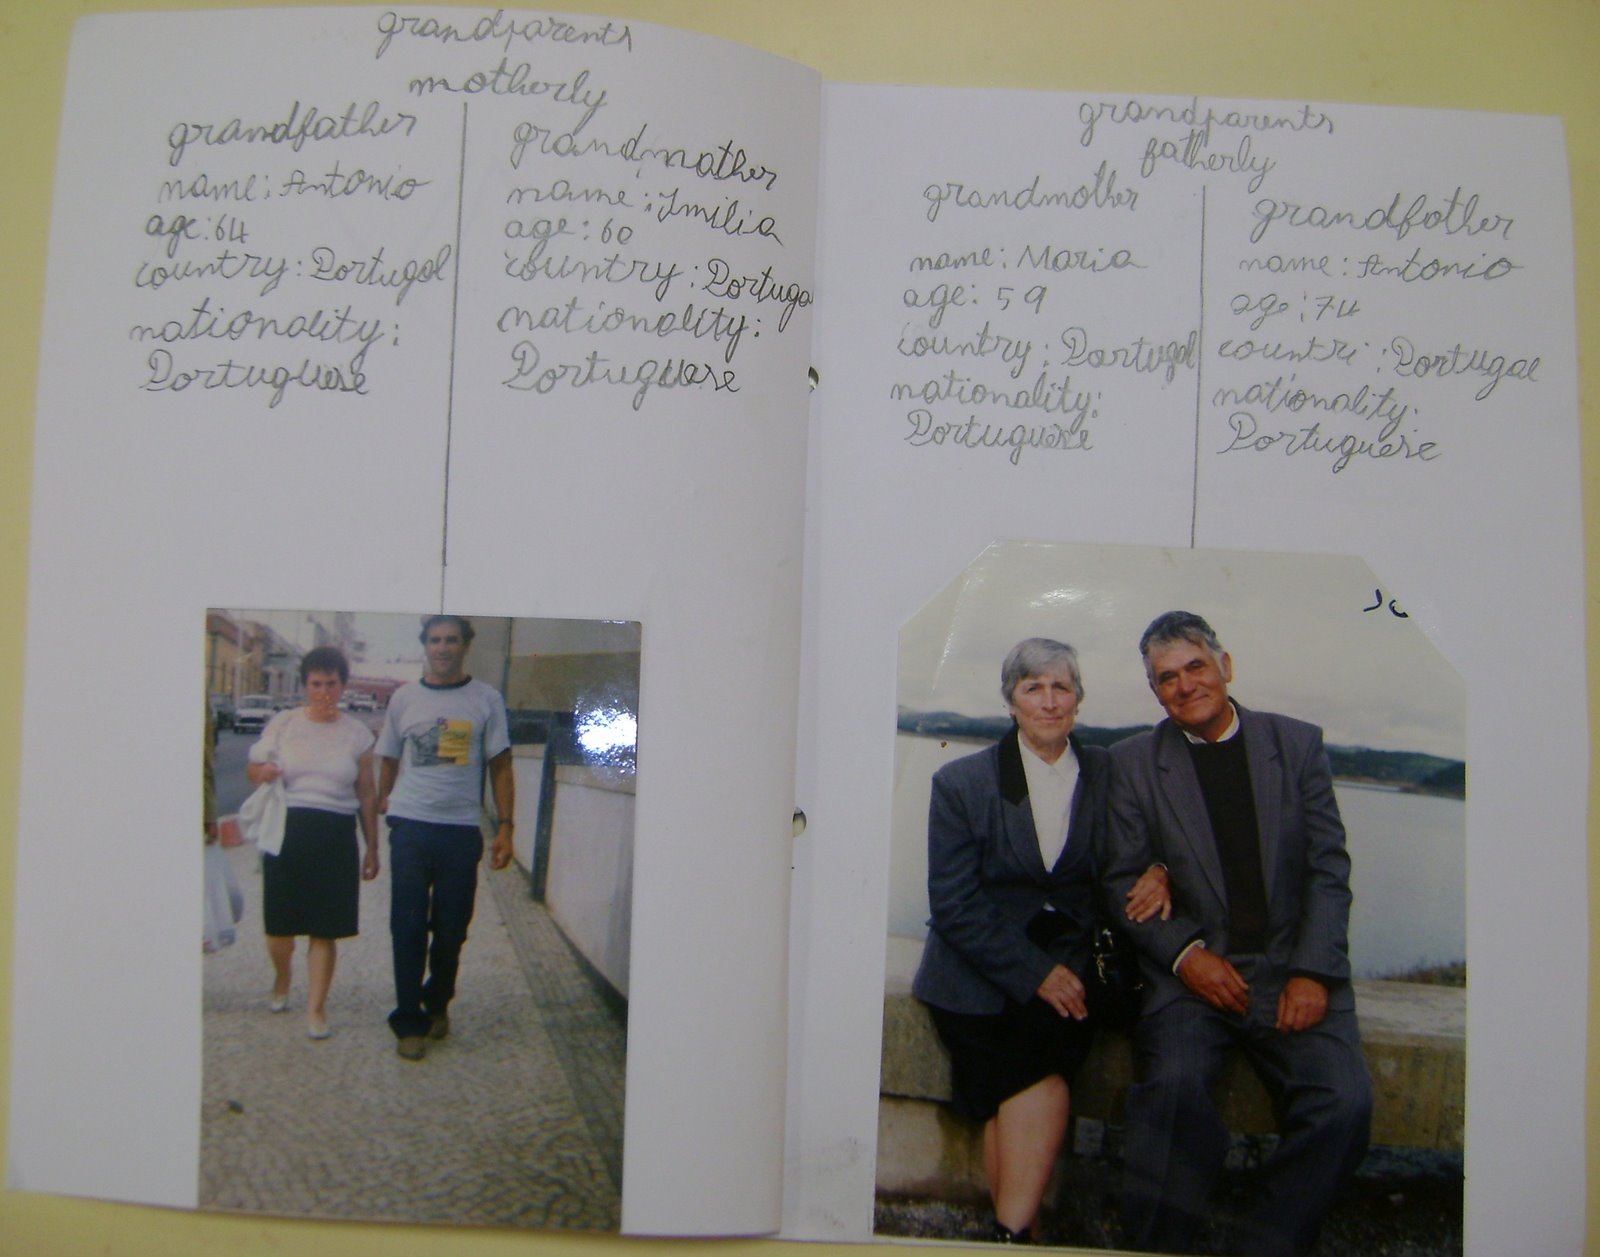 grandparents
motherly
grandfather
name: Antonio
age: 64
country: Portugal
nationality:
Portuguese
grandmother
name: Imilia
age: 60
country: Portugal
nationality:
Portuguese
grandparents
fatherly
grandmother
name: Maria
age: 59
country: Portugal
nationality:
Portuguese
grandfother
name: Antonio
age: 74
countri: Portugal
nationality:
Portuguese